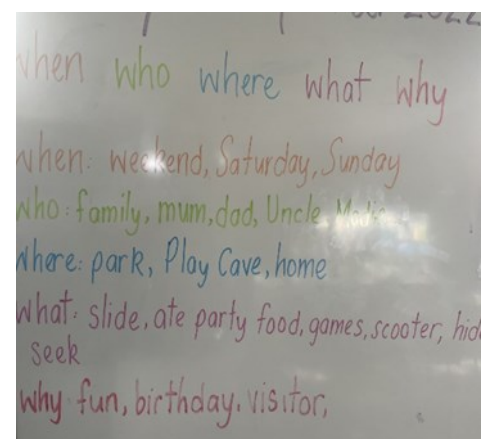 2022
when who where what why
when: weekend, Saturday, Sunday
who: family, mum, dad, Uncle,
where: park, Play Cave, home
what: slide, ate party food, games, scooter, hid
seek
why fun, birthday. visitor,